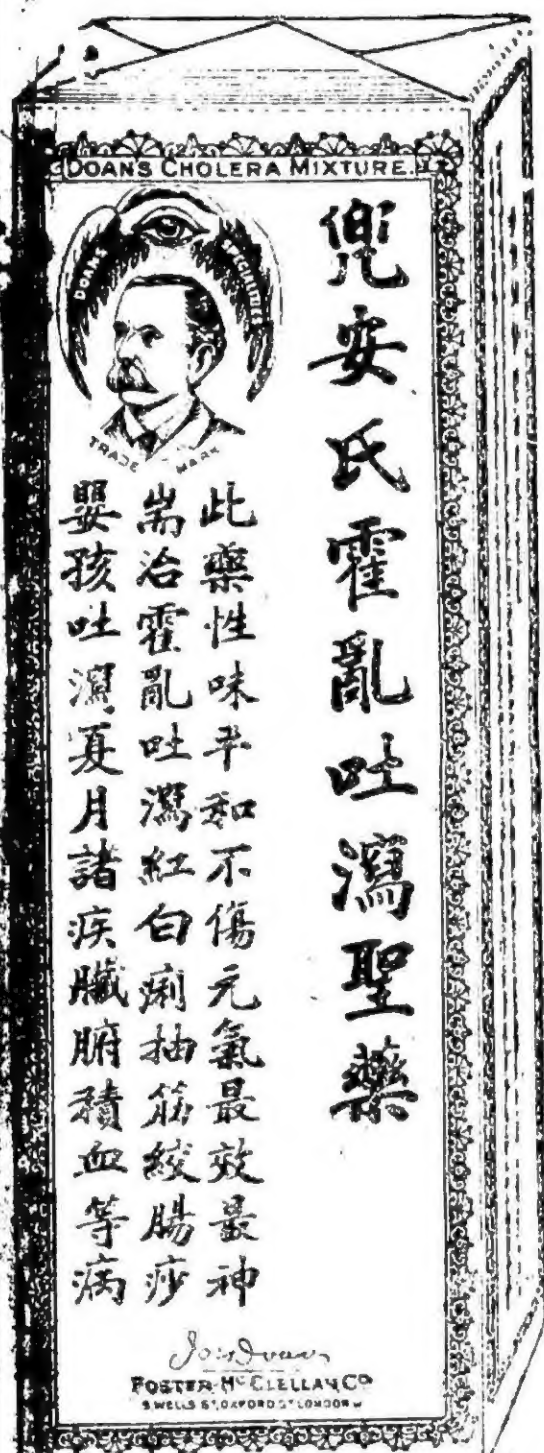 DOAN'S CHOLERA MIXTURE.
DOANS SPECIALITIES
TRADE MARK
兜安氏霍亂吐瀉聖藥
此藥性味平和不傷元氣最效最神
耑治霍亂吐瀉紅白痢抽筋絞腸痧
嬰孩吐瀉夏月諸疾臟腑積血等病
Jas Doan
FOSTER-McCLELLAN CO
8 WELLS ST, OXFORD ST LONDON W